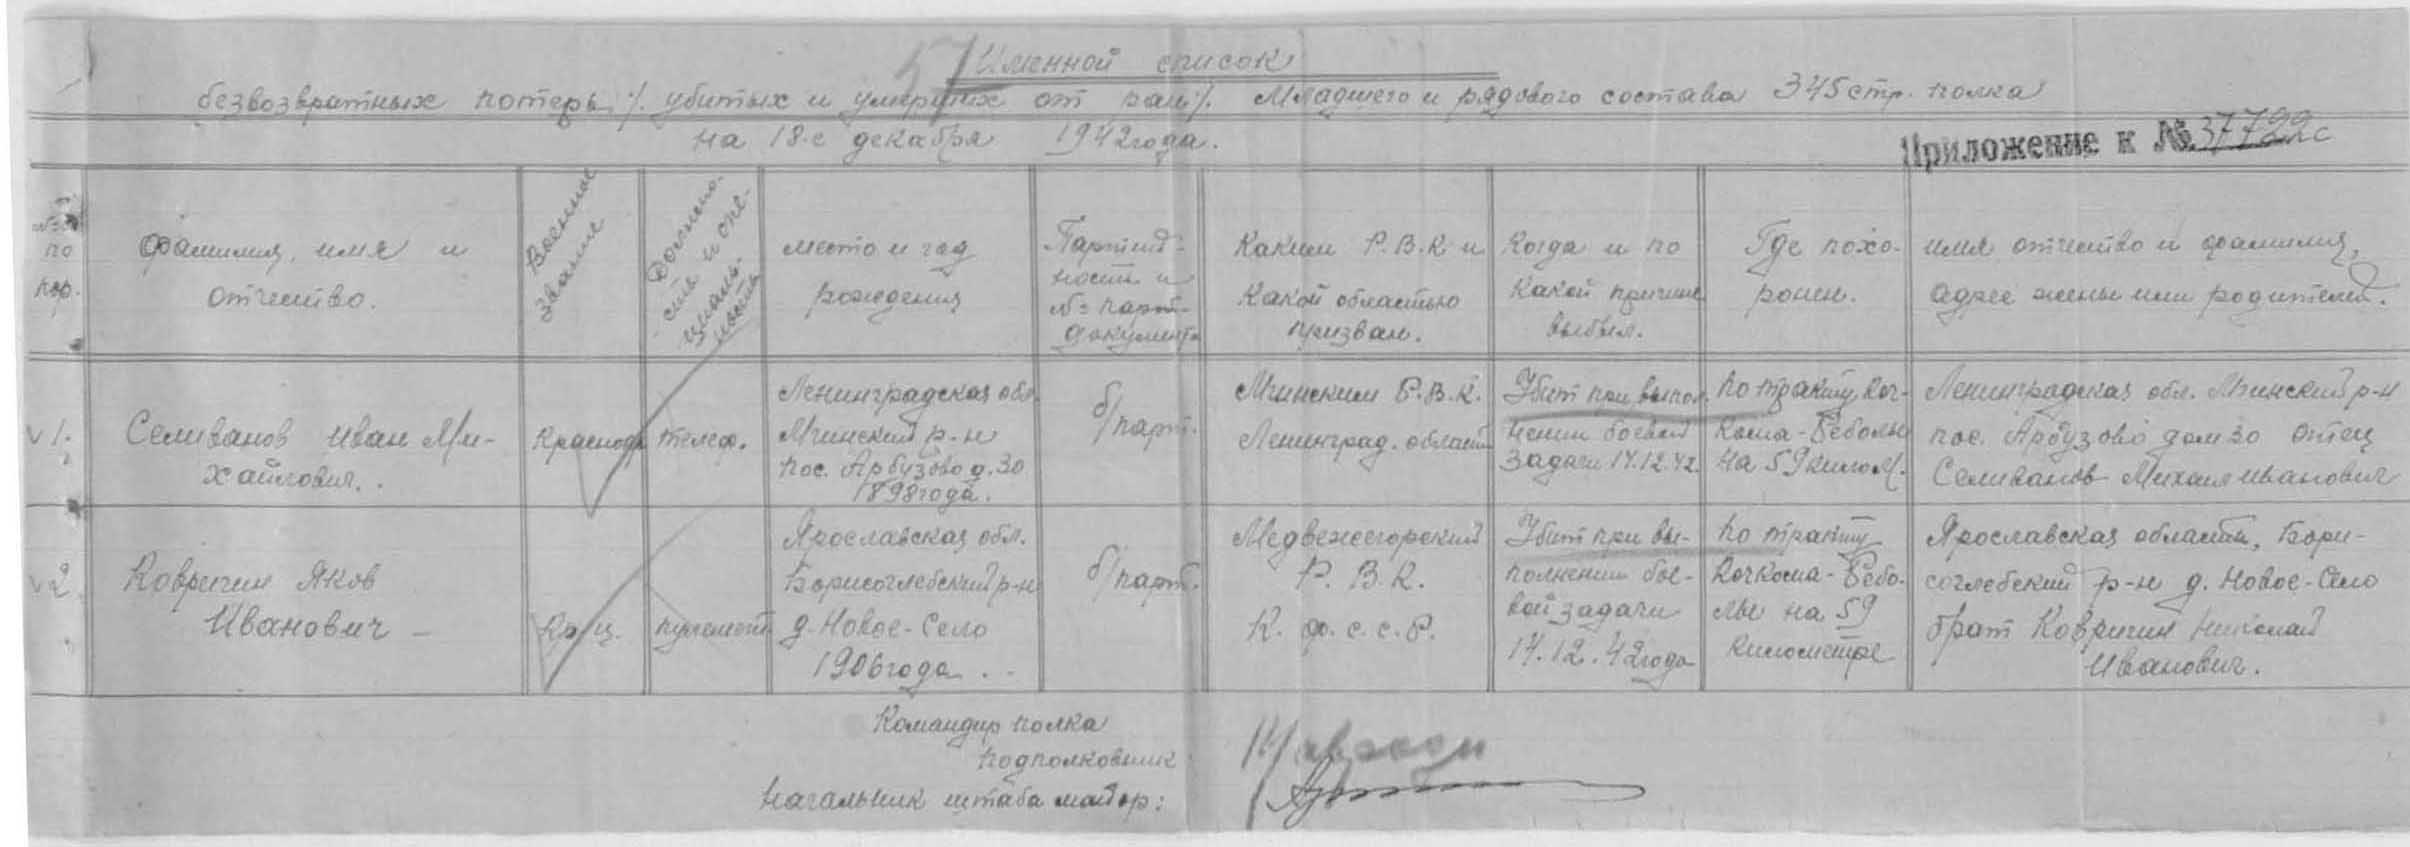 Именной список
безвозвратных потерь ./. убитых и умерших от ран ./. Младшего и рядового состава 345 стр. полка
на 18-е декабря 1942 года.
Приложение к № 37722с
по
пор.
Фамилия, имя и
отчество.
Военное
звание
Должно-
сть и спе-
циаль-
ность
место и год
рождения
Партий-
ность и
№ парт-
документа
Каким Р.В.К и
какой областью
призван.
Когда и по
какой причине
выбыл.
Где похо-
ронен.
имя отчество и фамилия,
адрес жены или родителей.
1.
Селиванов Иван Ми-
хайлович.
Красноар
телеф.
Ленинградская обл.
Мгинский р-н
пос. Арбузово д. 30
1898 года.
б/парт.
Мгинским Р.В.К.
Ленинград. области
Убит при выпол
нении боевой
задачи 14.12.42.
по тракту Коч-
кома-Реболы
на 59 килом.
Ленинградская обл. Мгинский р-н
пос. Арбузово дом 30 отец
Селиванов Михаил Иванович
2.
Ковригин Яков
Иванович
Кр/ц.
пулемет
Ярославская обл.
Борисоглебский р-н
д. Новое-Село
1906 года.
б/парт.
Медвежегорский
Р. В. К.
К. ф. с. с. Р.
Убит при вы-
полнении бое-
вой задачи
14.12.42 года
по тракту
Кочкома-Ребо-
лы на 59
километре
Ярославская область, Бори-
соглебский р-н д. Новое-Село
брат Ковригин Николай
Иванович.
Командир полка
подполковник
Начальник штаба майор: